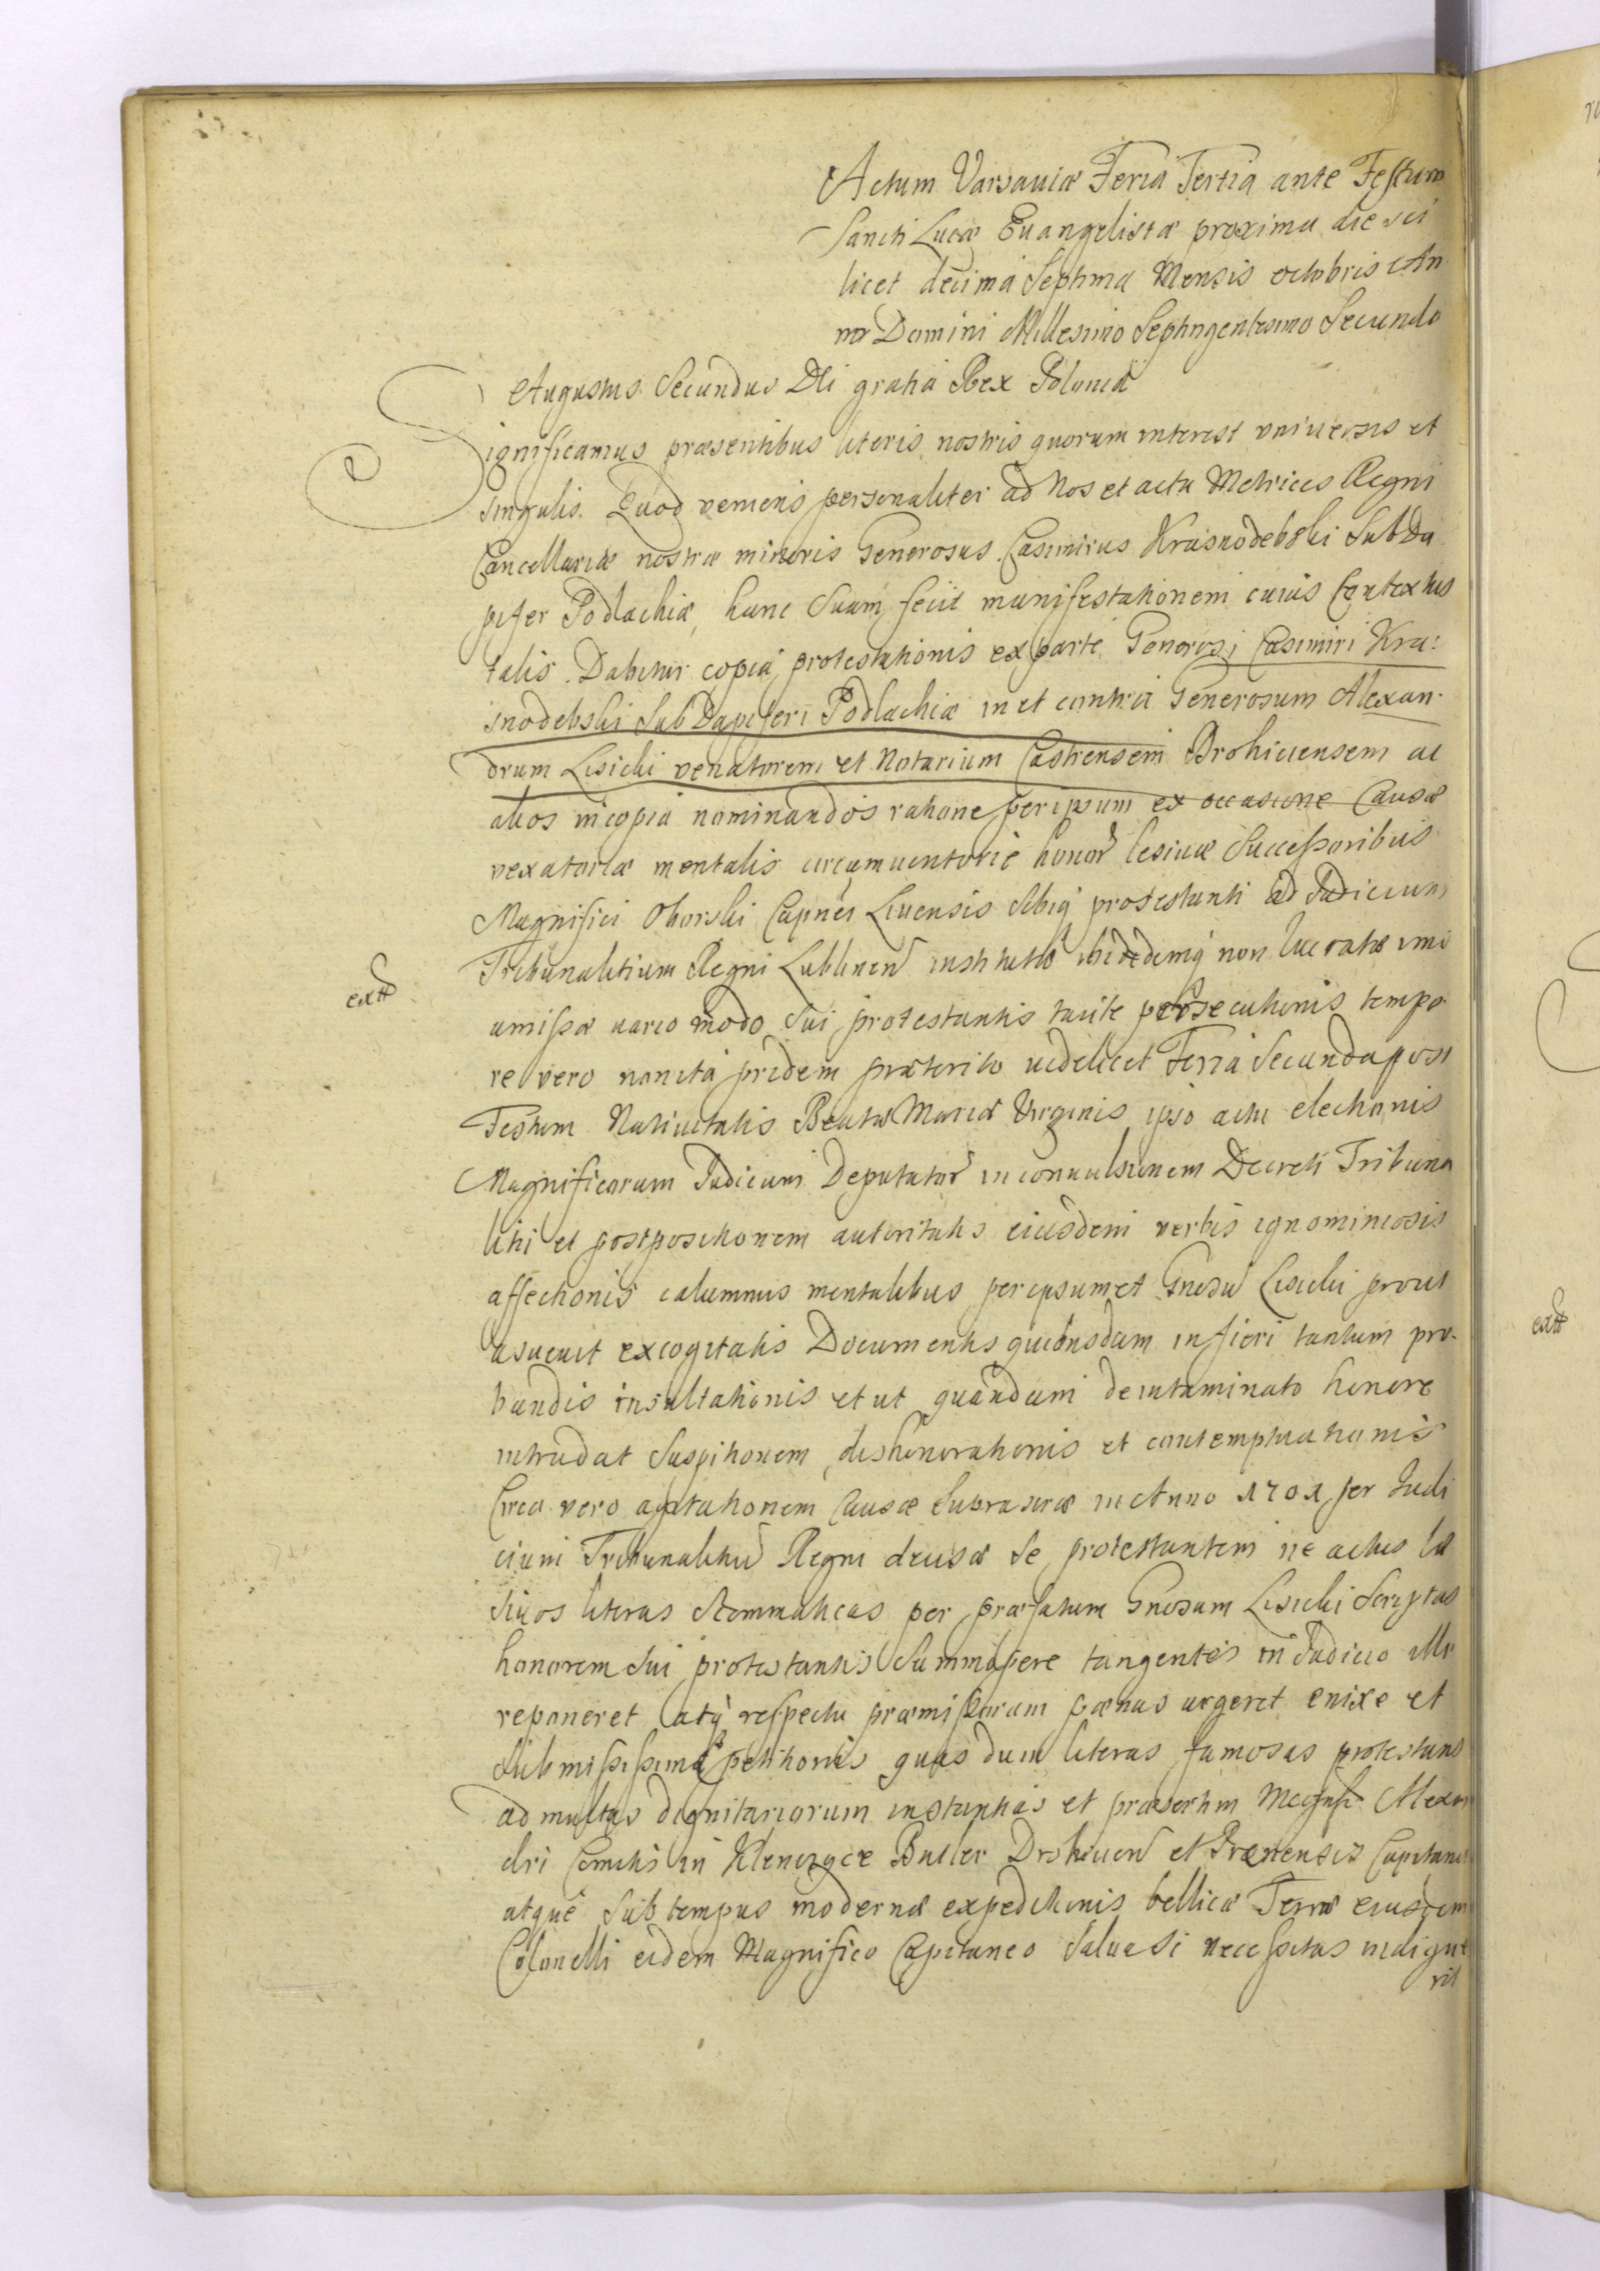 Actum Varsaviæ Feria Tertia ante Festum
Sancti Lucæ Euangelistæ proxima die sci
licet decima Septima Mensis octobris An
no Domini Millesimo Septingentesimo Secundo
Augustus Secundus Dei gratia Rex Poloniæ
Significamus præsentibus literis nostris quorum interest vniuersis et
singulis. Quod veniens personaliter ad Nos et acta Metrices Regni
Cancellariæ nostræ minoris Generosus Casimirus Krasnodebski SubDa
pifer Podlachiæ, hanc Suam fecit manifestationem cuius Contextus
talis. Dabitur copia protestationis ex parte Generosi Casimiri Kra:
snodebski SubDapiferi Podlachiæ in et contra Generosum Alexan-
drum Lisicki venatorem et Notarium Castrensem Drohicensem ac
alios in copia nominandos ratione per ipsum ex occasione Causæ
vexatoriæ mentalis circumuentoriè honor lesiuæ Successoribus
Magnifici Oborski Capnei Liuensis Sibiq protestanti ad Judicium
Tribunalitium Regni Lublinen institutæ ibidemq non lucratæ imo
extt
amissæ vario modo Sui protestantis tacite persecutionis tempo
re vero non ita pridem præterito videlicet Feria Secunda post
Festum Natiuitatis Beatæ Mariæ Virginis ipso actu electionis
Magnificorum Judicum Deputator in conuulsionem Decreti Tribuna
litii et postpositionem autoritatis eiusdem verbis ignominiosis
affectionis calumniis mentalibus per ipsummet Gnosu Lisicki prout
asueuit excogitatis Documentis quibusdam in fieri tantum pro-
bandis insultationis et ut quandam de intaminato honore
intrudat Suspitionem, dishonorationis et contemptuationis
Circa vero agitationem Causæ Suprascræ in Anno 1701 per Judi
cium Tribunalitiu Regni decisæ Se protestantem ne actus læ
siuos literas Stemmaticas per præfatum Gnosum Lisicki Scriptas
honorem Sui protestantis Summopere tangentes in Judicio illo
reponeret atq respectu præmissorum pœnas urgeret enixe et
Submississimæ petitionis quas dum literas famosas protestans
ad multas dignitariorum instantias et præsertim Magnfi Alexan
dri Comitis in Klenczyce Butler Drohicen et Prænensis Capitanei
atque Sub tempus modernæ expeditionis bellicæ Terræ eiusdem
Colonelli eidem Magnifico Capitaneo Salua Si necessitas indigue
rit
extt